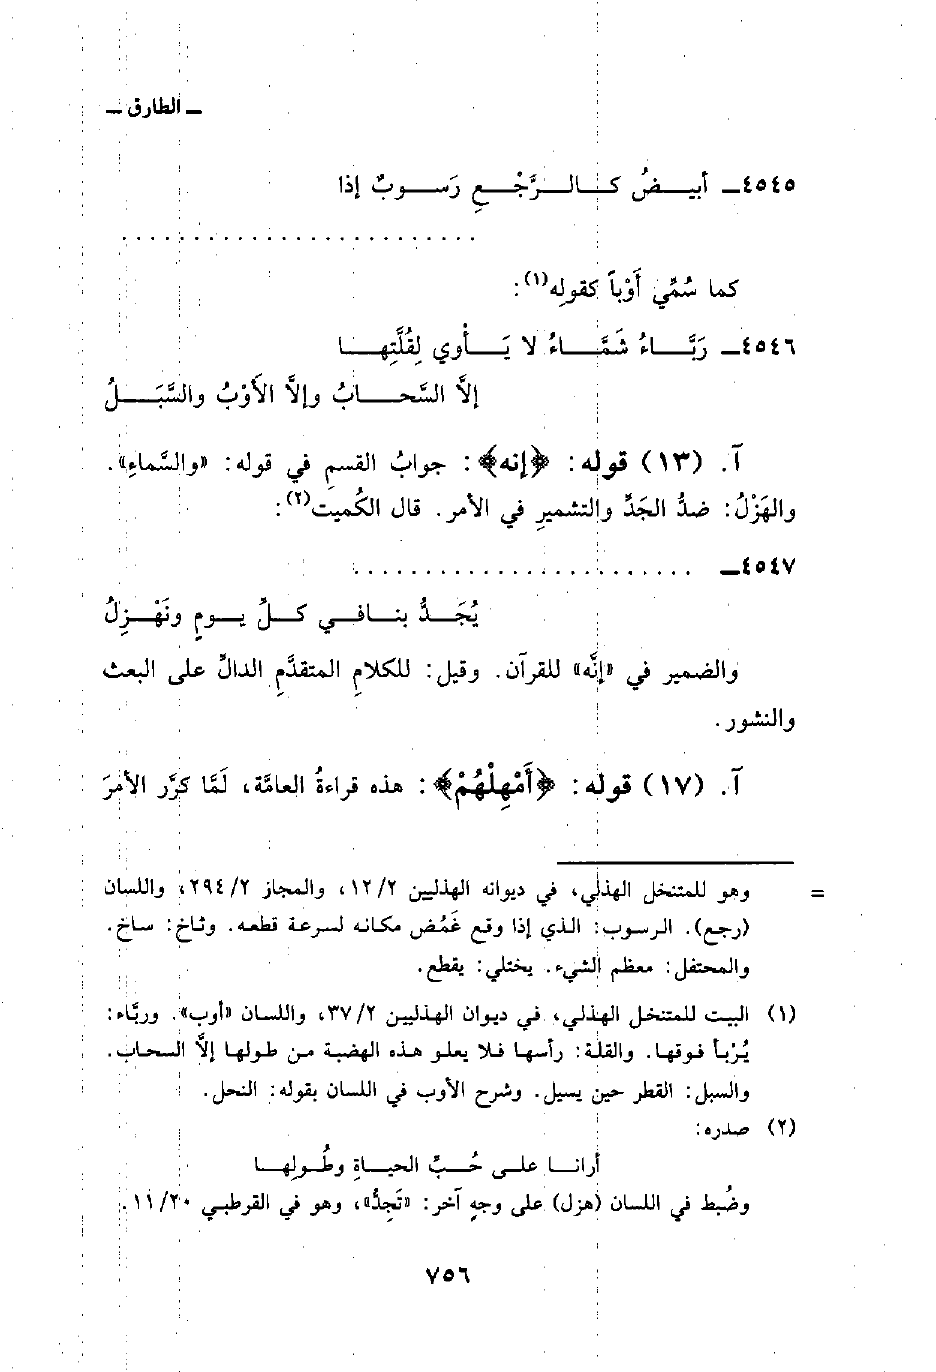 ـ الطارق ـ
٤٥٤٥ـ أبيــضُ كــالــرَّجْــعِ رَســوبٌ إذا
. . . . . . . . . . . . . . . . . . . . . . . .
كما سُمِّي أَوْباً كقولِه(١):
٤٥٤٦ـ رَبَّــاءُ شَمَّــاءُ لا يَــأْوي لِقُلَّتِهــا
إلاَّ السَّحــابُ وإلاَّ الأَوْبُ والسَّبَــلُ
آ. (١٣) قوله: ﴿إنه﴾: جوابُ القسمِ في قوله: «والسَّماءِ».
والهَزْلُ: ضدُّ الجَدِّ والتشميرِ في الأمر. قال الكُميت(٢):
٤٥٤٧ـ . . . . . . . . . . . . . . . . . . . . . . . .
يُجَــدُّ بنــافــي كــلِّ يــومٍ ونَهْــزِلُ
والضمير في «إنَّه» للقرآن. وقيل: للكلامِ المتقدَّمِ الدالِّ على البعث
والنشور.
آ. (١٧) قوله: ﴿أَمْهِلْهُمْ﴾: هذه قراءةُ العامَّة، لَمَّا كرَّر الأمرَ
= وهو للمتنخل الهذلي، في ديوانه الهذليين ١٢/٢، والمجاز ٢٩٤/٢، واللسان
(رجع). الرسوب: الذي إذا وقع غَمُض مكانه لسرعة قطعه. وثاخ: ساخ.
والمحتفل: معظم الشيء. يختلي: يقطع.
(١) البيت للمتنخل الهذلي، في ديوان الهذليين ٣٧/٢، واللسان «أوب». وربَّاء:
يُرْبأ فوقها. والقلة: رأسها فلا يعلو هذه الهضبة من طولها إلاَّ السحاب.
والسبل: القطر حين يسيل. وشرح الأوب في اللسان بقوله: النحل.
(٢) صدره:
أرانــا علــى حُــبِّ الحيــاةِ وطُــولِهــا
وضُبط في اللسان (هزل) على وجهٍ آخر: «تَجِدُّ»، وهو في القرطبي ١١/٢٠.
٧٥٦